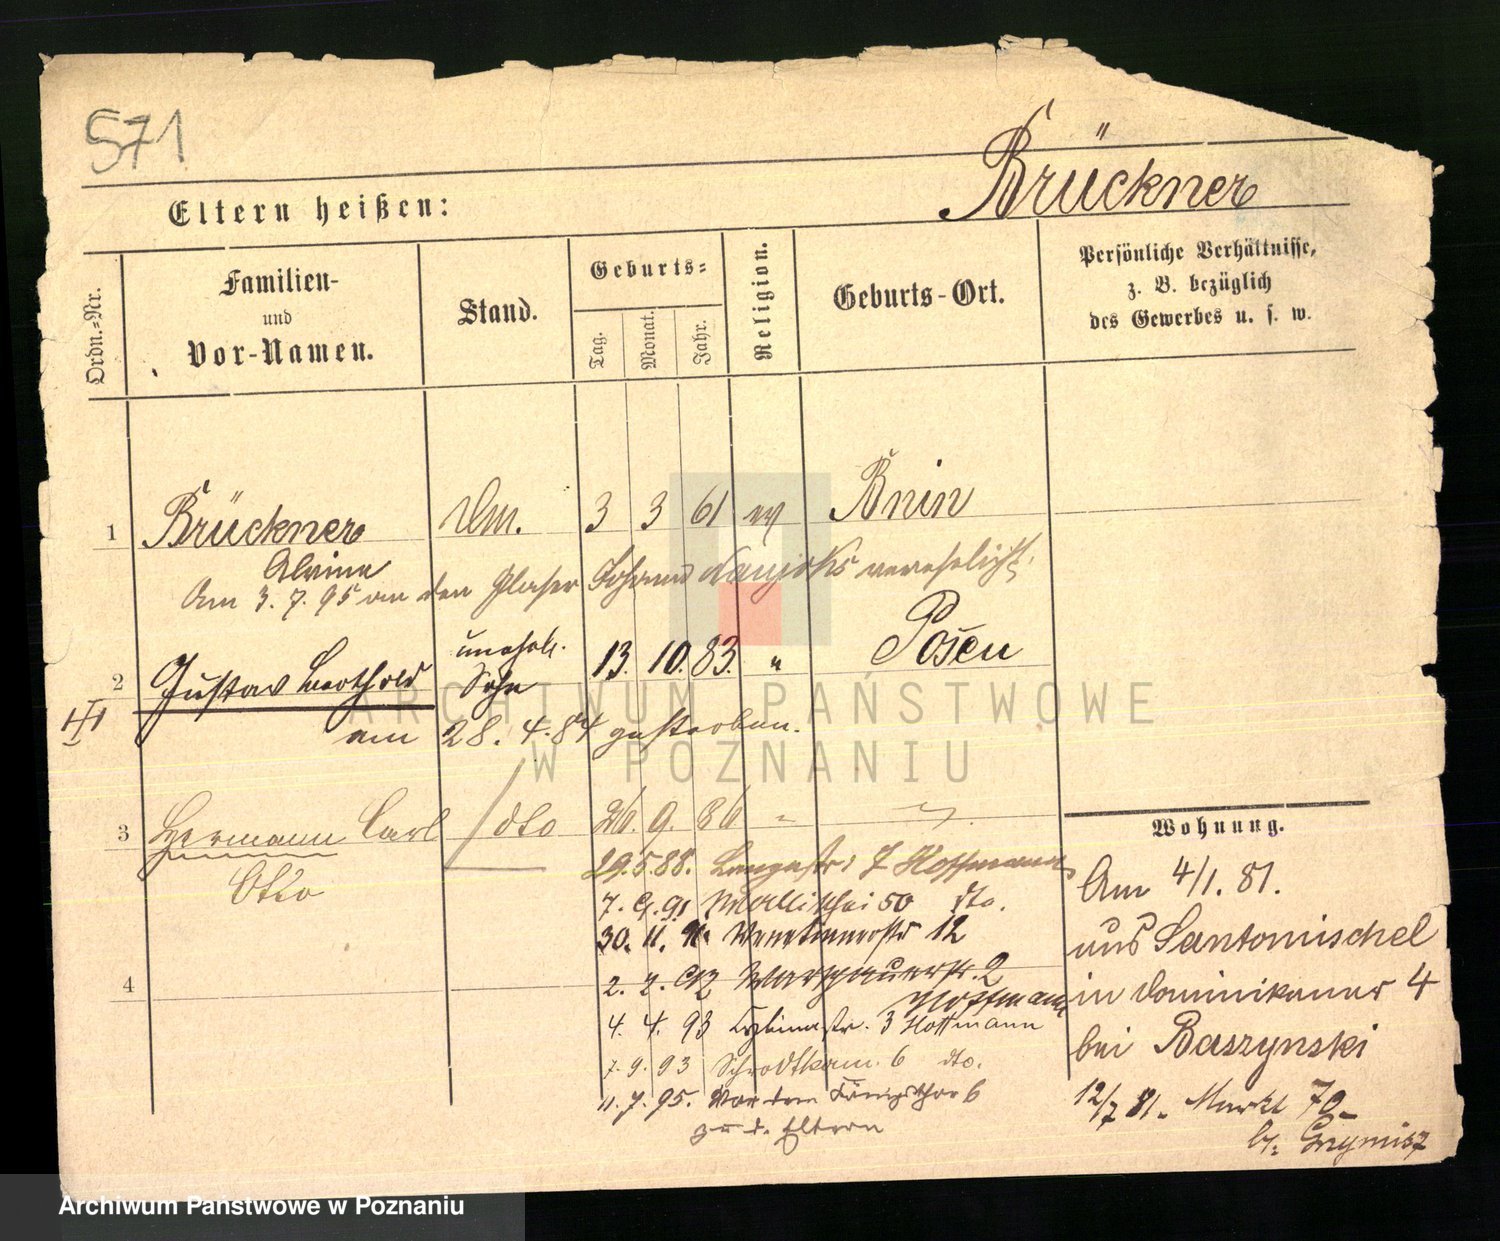 571
Brückner
Eltern heißen:
Ordn.-Nr.
Familien-
und
Vor-Namen.
Stand.
Geburts-
Tag.
Monat.
Jahr.
Religion.
Geburts-Ort.
Persönliche Verhältnisse,
z. B. bezüglich
des Gewerbes u. s. w.
1 Brückner 3 3 61 ev Bnin
Alvine
Am 3. 7. 95 an den Glaser Johann verehelicht.
2 Gustav Berthold unehel. Sohn 13. 10. 83. " Posen
am 28. 4. 84 gestorben.
3 Hermann Carl dto 26. 9. 86 "
Otto
29.5.88. 7 Hoffmann
7. 9. 91 Wallischei 50 dto.
30. 11. 91. Venetianerstr 12
4
2. 2. 92 Warschauerstr. 2
Hoffmann
4. 4. 93 3 Hoffmann
7. 9. 93 Schrodkam. 6 dto.
11. 7. 95. Vor dem Königsthor 6
z. d. Eltern
Wohnung.
Am 4/1. 81.
aus Santomischel
in Dominikaner 4
bei Baszynski
12/7 81. Markt 70
b. Grzymisz
ARCHIWUM PAŃSTWOWE
W POZNANIU
Archiwum Państwowe w Poznaniu